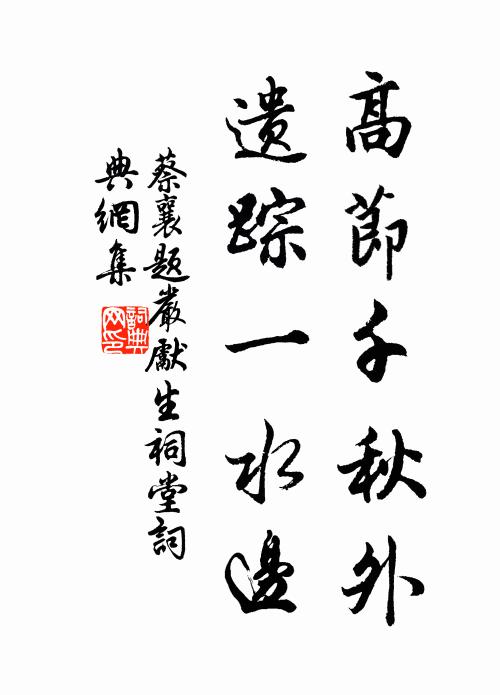 高節千秋外
遺踪一水邊
蔡襄題嚴獻生祠堂詞
典網集
詞典
网印